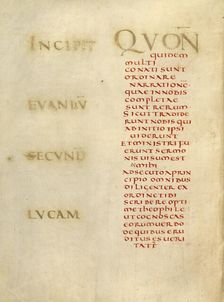 INCIPIT
EVANḠ
SECVND̄
LVCAM
QVOÑ
QUIDEM
MULTI
CONATI SUNT
ORDINARE
NARRATIONE
QUAE IN NOBIS
COMPLETAE
SUNT RERUM
SICUT TRADIDE
RUNT NOBIS QUI
AB INITIO IPSI
UIDERUNT
ET MINISTRI FU
ERUNT SERMO
NIS UISUM EST
ET MIHI
ADSECUTO A PRIN
CIPIO OMNIBUS
DILIGENTER EX
ORDINE TIBI
SCRIBERE OPTI
ME THEOPHILE
UT COGNOSCAS
EORUM UERBO
DE QUIBUS ERU
DITUS ES UERI
TATĒ